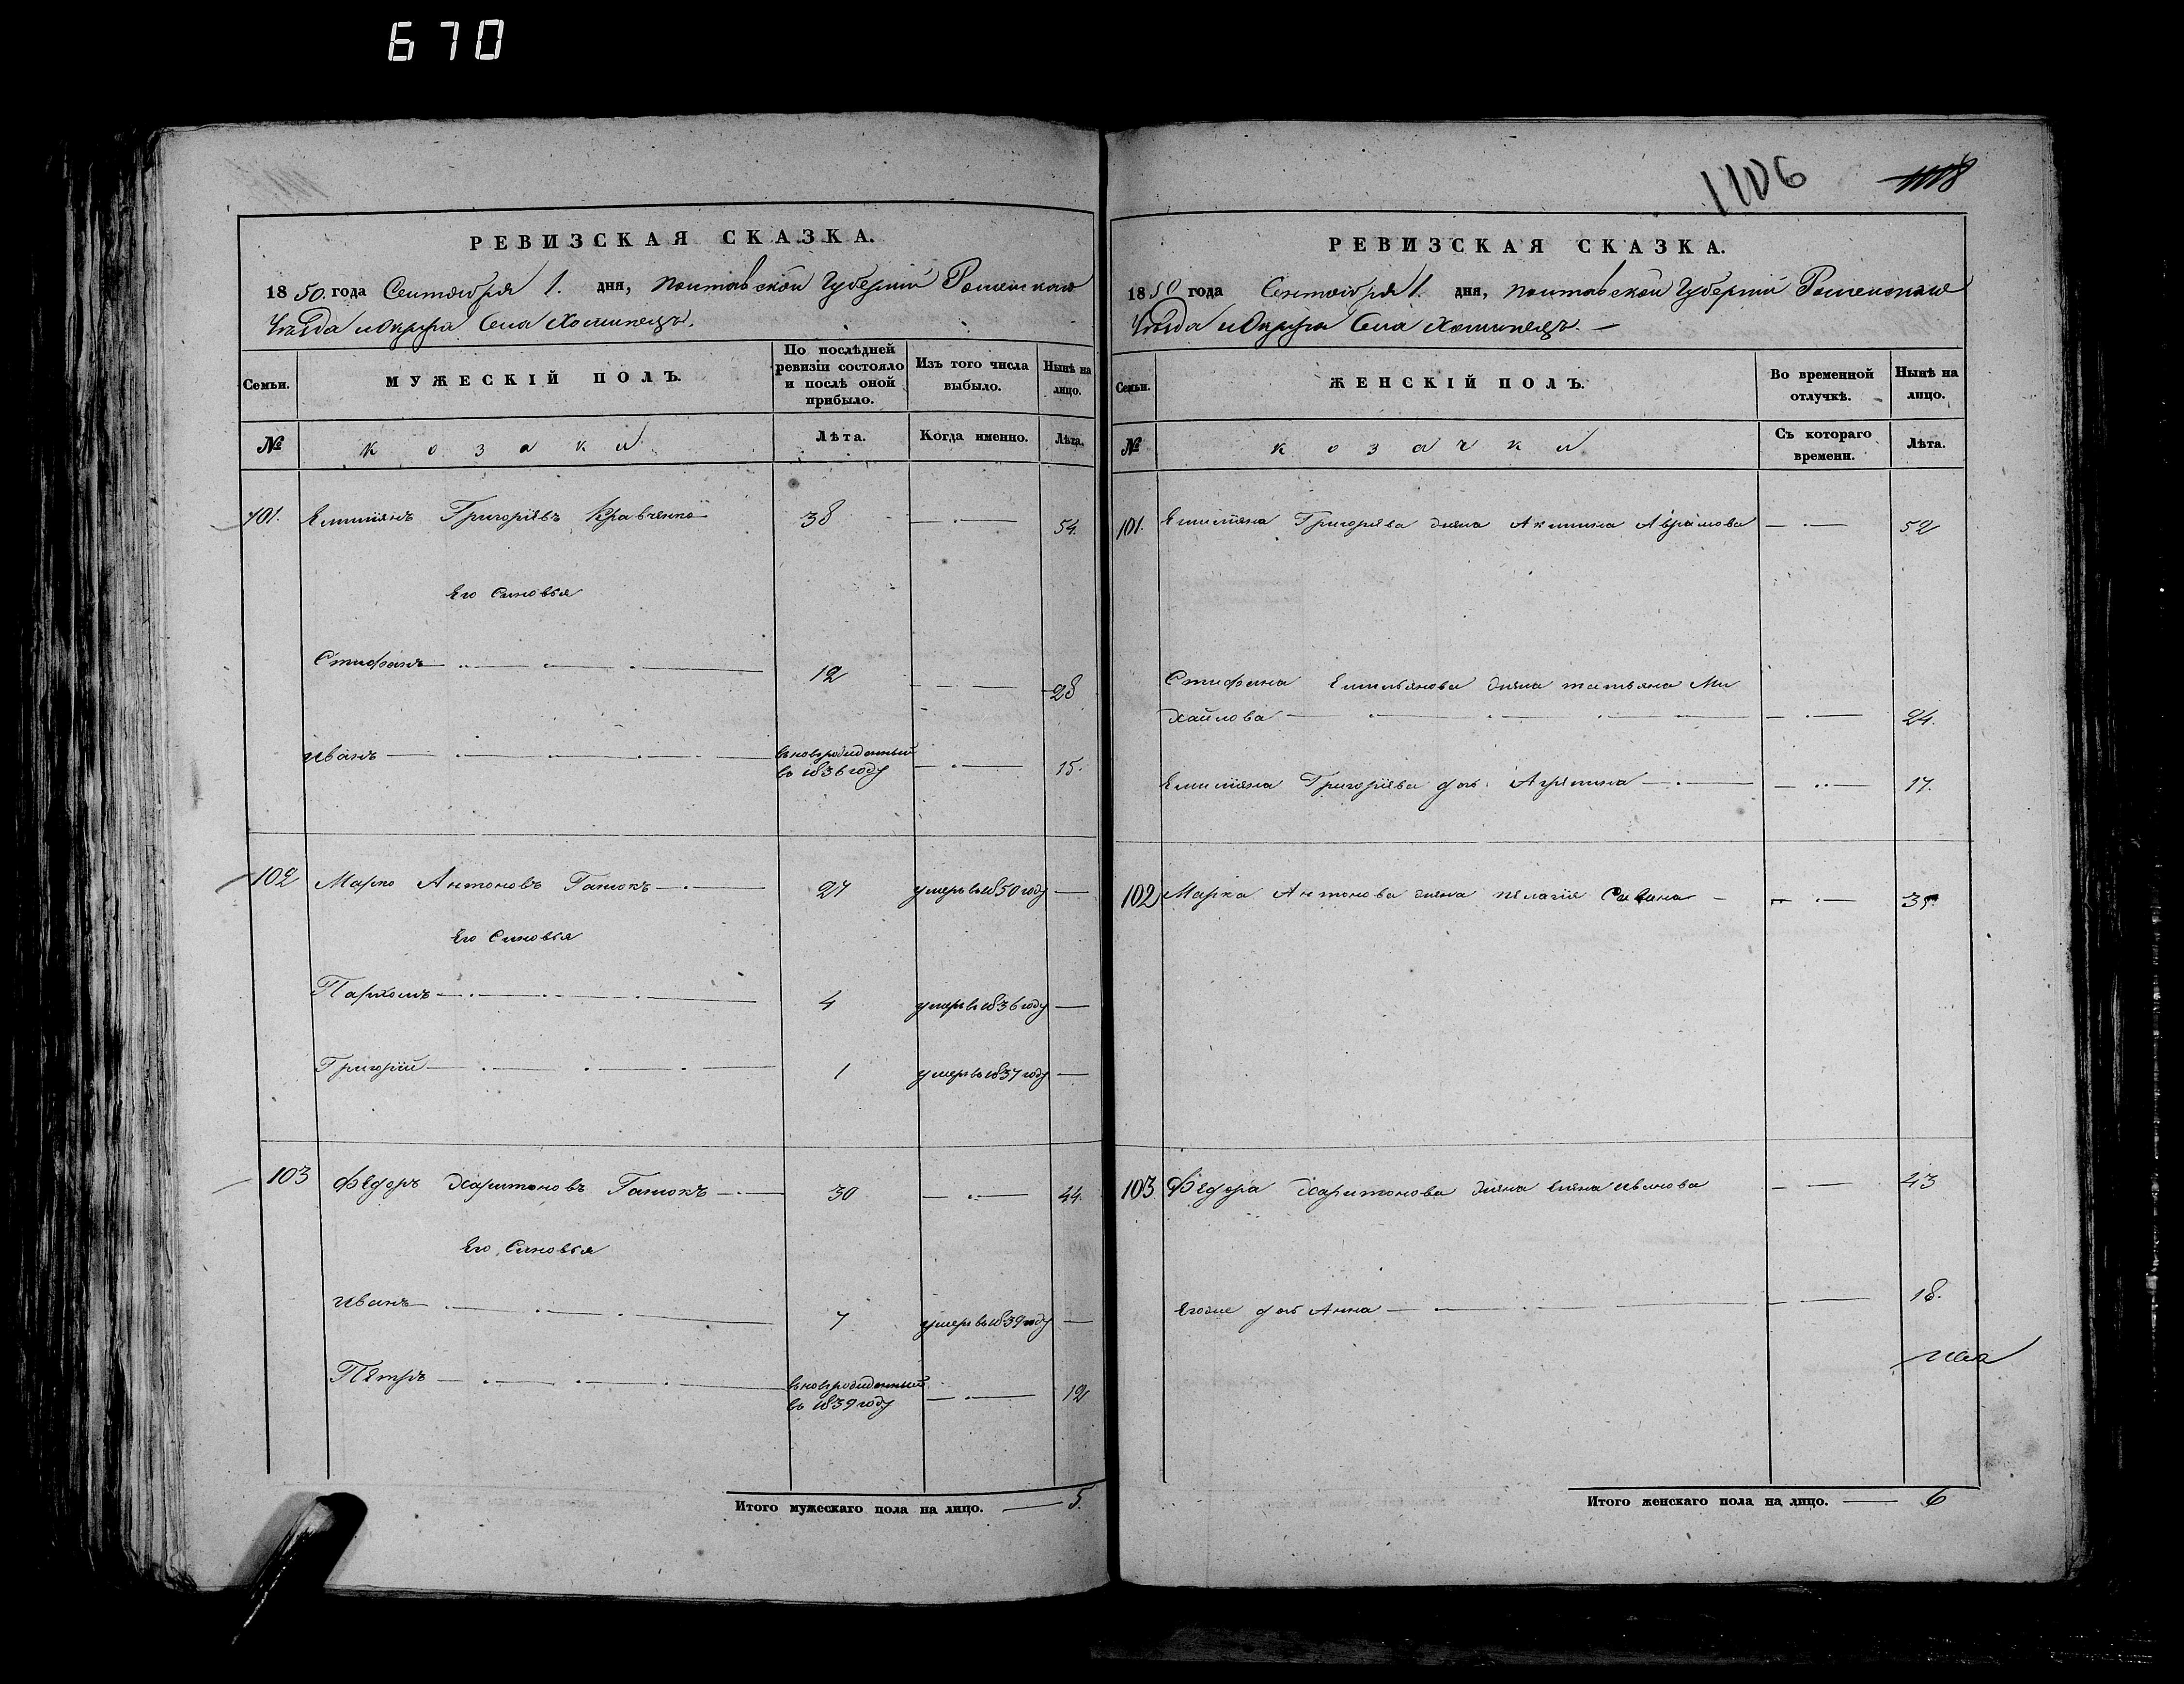 670
РЕВИЗСКАЯ СКАЗКА.
1850. года Сентября 1. дня, Полтавской Губерніи Роменскаго
Уезда и Округа Села Хоминецъ.
Семьи.
МУЖЕСКІЙ ПОЛЪ.
По послѣдней
ревизіи состояло
и послѣ оной
прибыло.
Изъ того числа
выбыло.
Нынѣ на
лицо.
№
козаки
Лѣта.
Когда именно.
Лѣта.
101. Емилiянъ Григоріевъ Кравченко 38 54.
Его Синовья
Стифанъ 12 28
Иванъ вновърожденный
въ 1836 году 15.
102 Марко Антоновъ Ганюкъ 27 умеръ въ 1850 году
Его Синовья
Пархомъ 4 умеръ въ 1836 году
Григорій 1 умеръ въ 1837 году
103 Федоръ Харитоновъ Ганюкъ 30 44.
Его Синовья
Иванъ 7 умеръ въ 1839 году
Петръ вновърожденный
въ 1839 году 12
Итого мужескаго пола на лицо. 5.
1106 1108
РЕВИЗСКАЯ СКАЗКА.
1850 года Сентября 1. дня, Полтавской Губерніи Роменскаго
Уезда и Округа Села Хоминецъ.
Семьи.
ЖЕНСКІЙ ПОЛЪ.
Во временной
отлучкѣ.
Нынѣ на
лицо.
№
козачки
Съ котораго
времени.
Лѣта.
101. Емилiяна Григорієва жена Акилина Аврамова 52
Стифана Емильянова жена татьяна Ми
хайлова 24.
Емилiяна Григоріева дочь Агрипина 17.
102 Марка Антонова жена пелагія Савина 35
103 Федора Харитонова жена елена иванова 43
Егоже дочь Анна 18.
Итого женскаго пола на лицо. 6